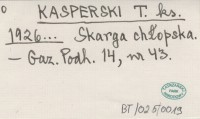 o
KASPERSKI T. ks.
1926... Skarga chłopska.
– Gaz. Podh. 14, nr 43.
BT/025/0019